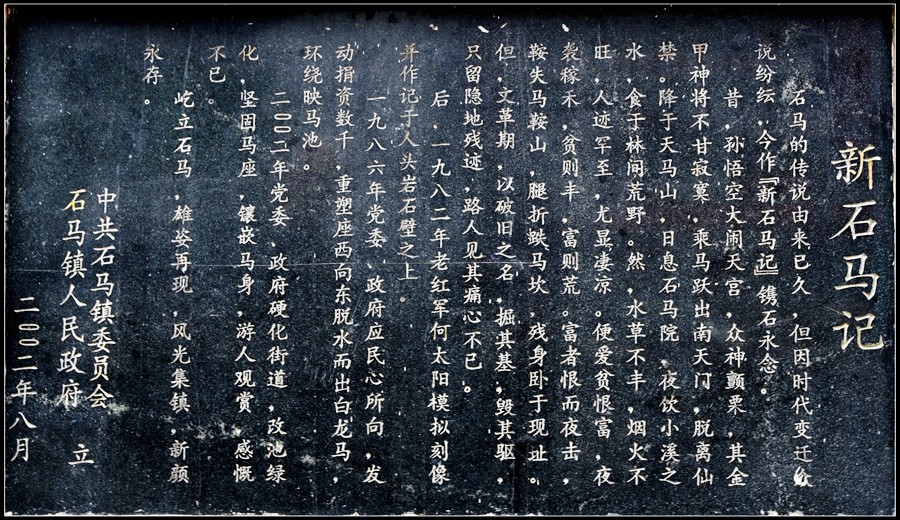 新石马记
石马的传说由来已久，但因时代变迁众
说纷纭，今作『新石马记』镌石永念。
昔，孙悟空大闹天宫，众神颤栗，其金
甲神将不甘寂寞，乘马跃出南天门，脱离仙
禁。降于天马山，日息石马院，夜饮小溪之
水，食于林间荒野。然，水草不丰，烟火不
旺，人迹罕至，尤显凄凉。便爱贫恨富，夜
袭稼禾，贫则丰，富则荒。富者恨而夜击，
鞍失马鞍山，腿折跌马坎，残身卧于现址。
但，文革期，以破旧之名，掘其基，毁其躯，
只留隐地残迹，路人见其痛心不已。
后，一九八二年老红军何太阳模拟刻像
并作记于人头岩石壁之上。
一九八六年党委、政府应民心所向，发
动捐资数千，重塑座西向东脱水而出白龙马，
环绕映马池。
二〇〇二年党委、政府硬化街道，改池绿
化，坚固马座，镶嵌马身，游人观赏，感慨
不已。
屹立石马，雄姿再现，风光集镇，新颜
永存。
中共石马镇委员会
石马镇人民政府 立
二〇〇二年八月